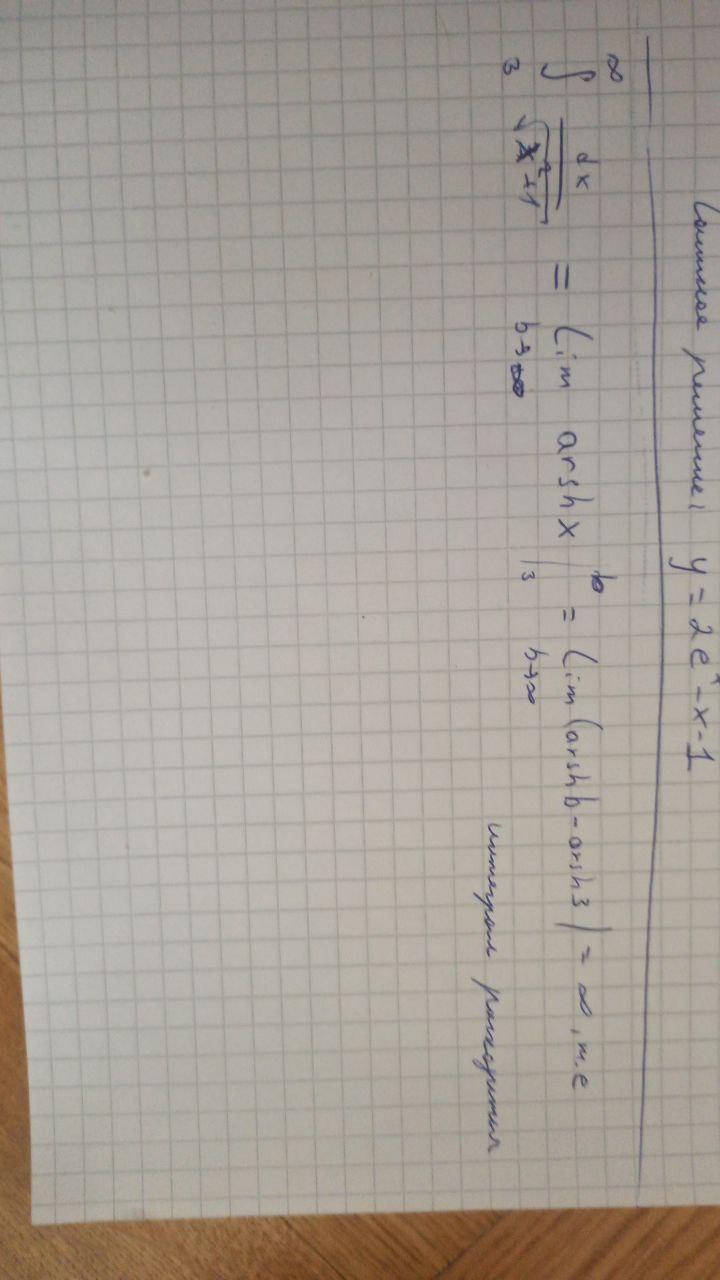 решение: y = 2e^x - x - 1
∫_3^∞ dx/√(x²+1) = lim_{b→∞} arsh x |_3^b = lim_{b→∞} (arsh b - arsh 3) = ∞, т.е
интеграл расходится